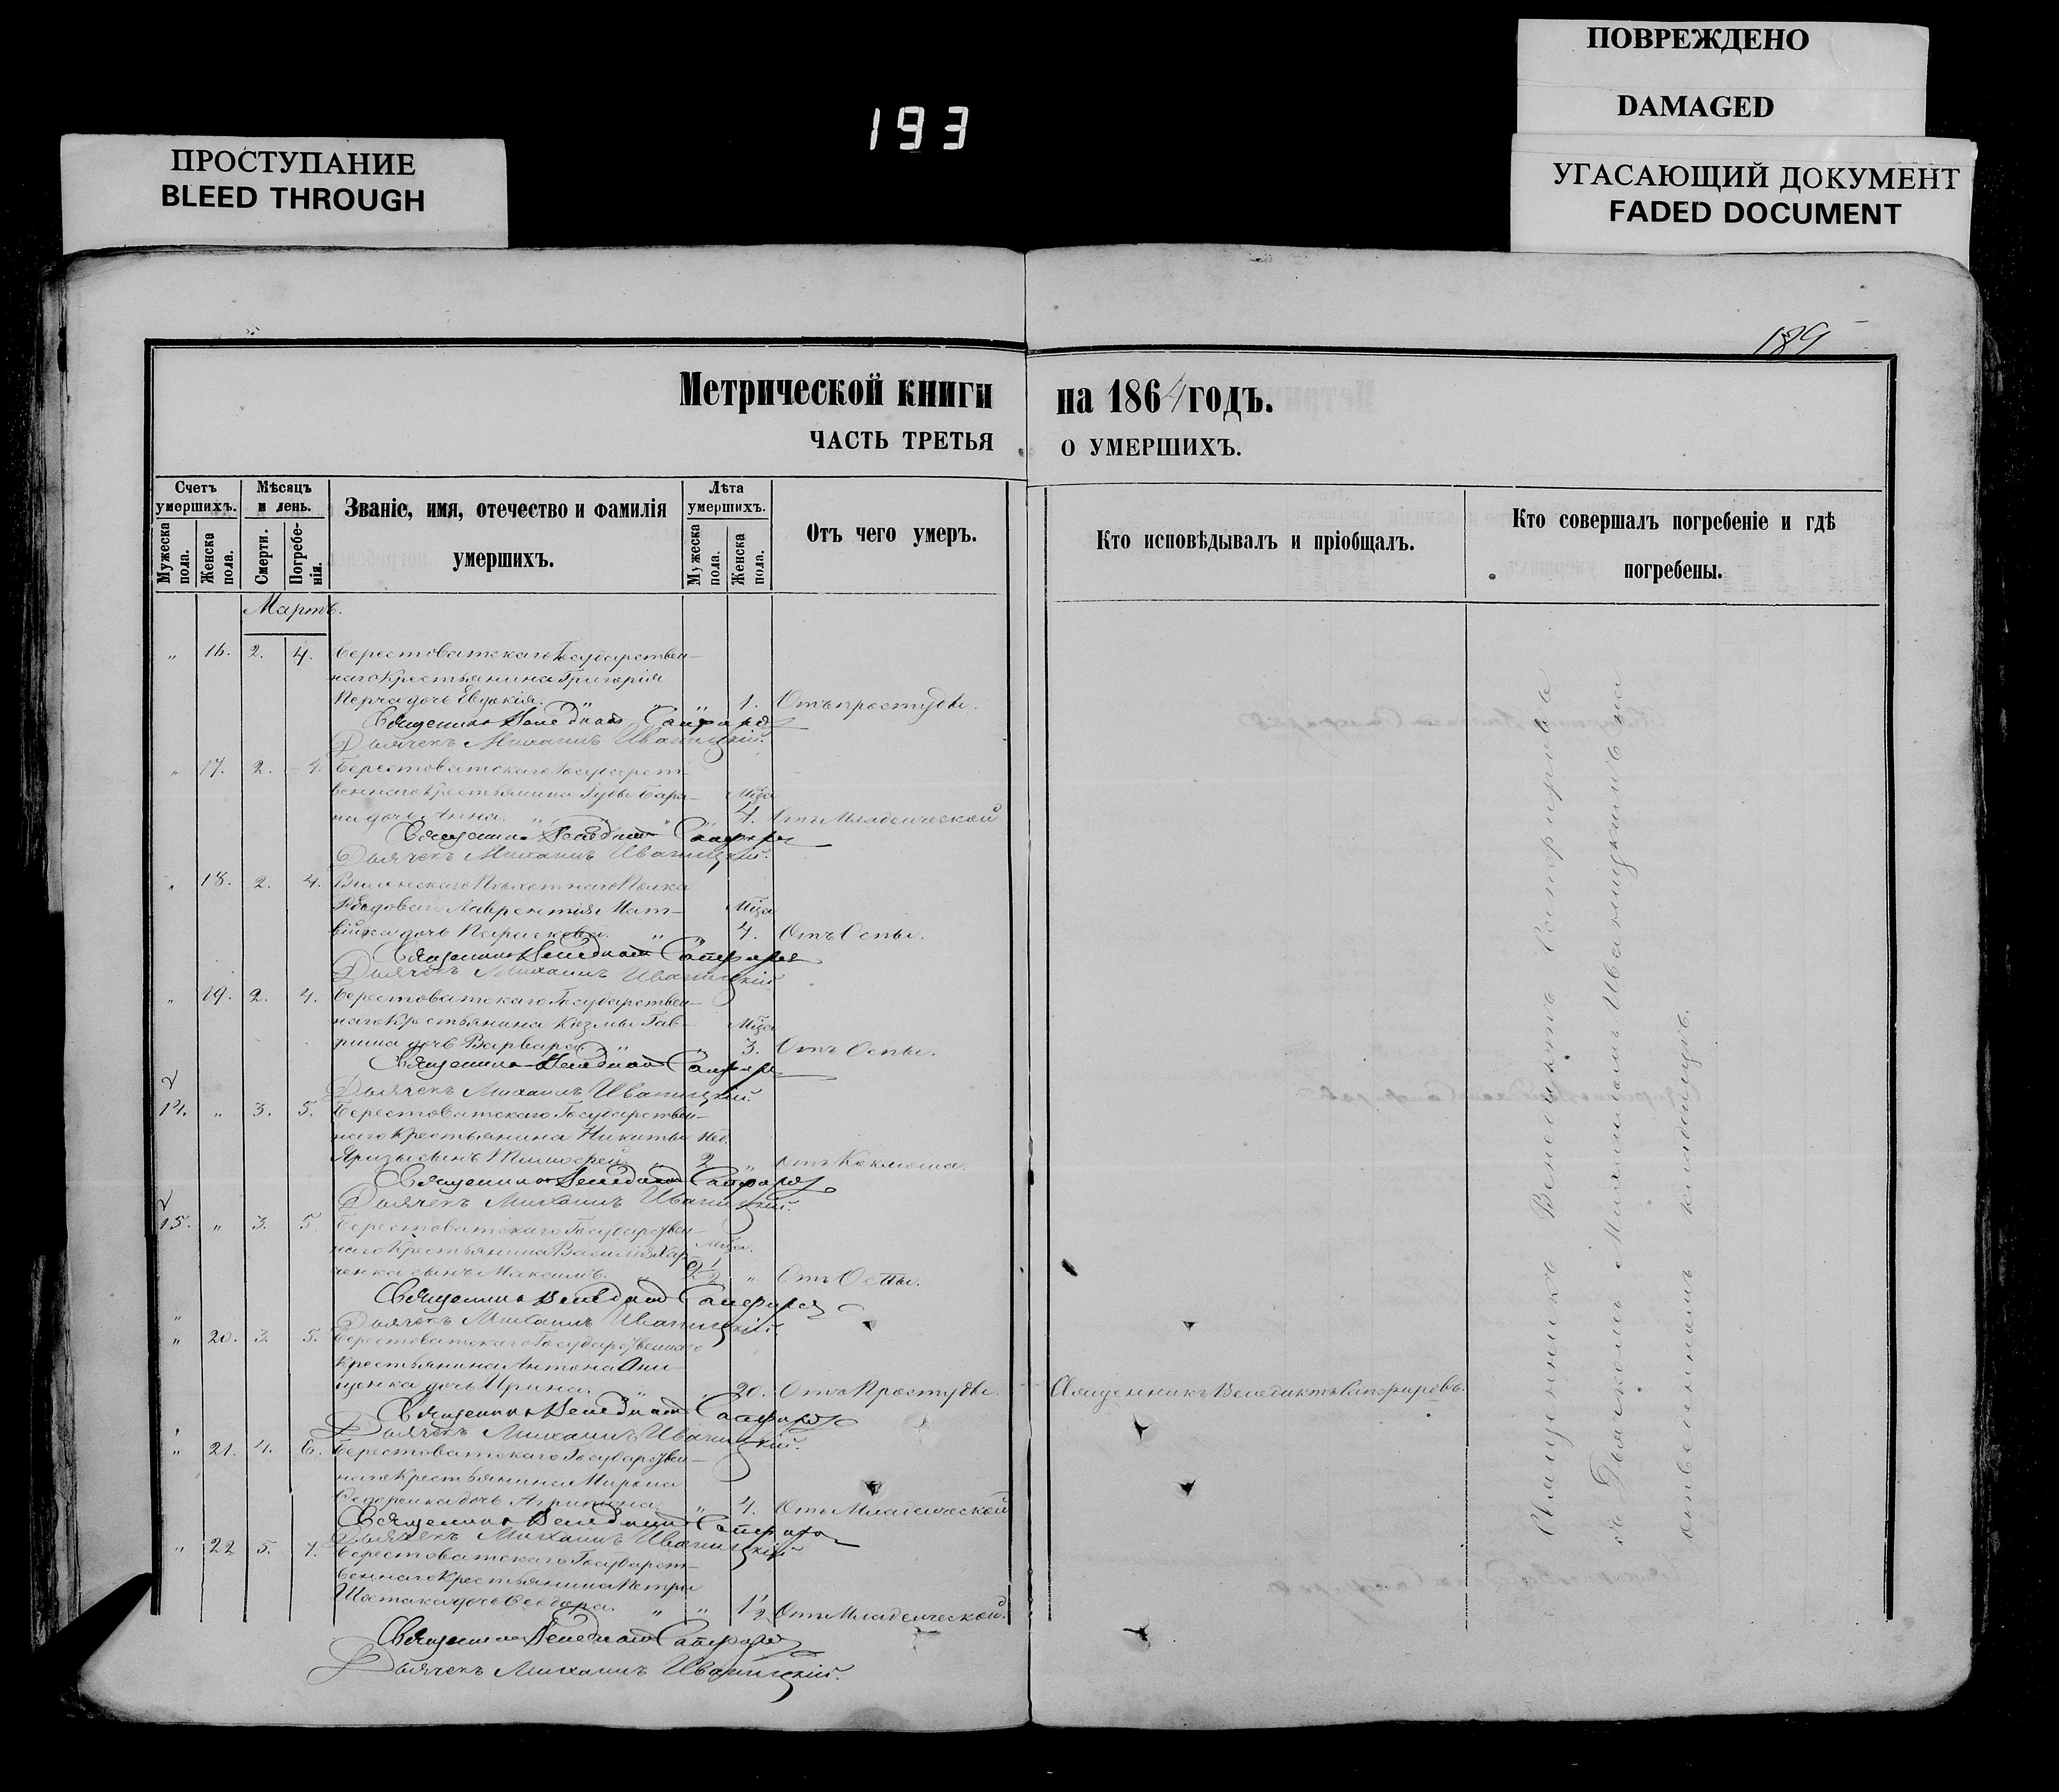 ПОВРЕЖДЕНО
DAMAGED
193
ПРОСТУПАНИЕ
BLEED THROUGH
УГАСАЮЩИЙ ДОКУМЕНТ
FADED DOCUMENT
189
Метрической книги на 1864 годъ.
ЧАСТЬ ТРЕТЬЯ О УМЕРШИХЪ.
Счетъ умершихъ.
Мужеска пола.
Женска пола.
Мѣсяцъ и день.
Смерти.
Погребенія.
Званіе, имя, отечество и фамилія умершихъ.
Лѣта умершихъ.
Мужеска пола.
Женска пола.
Отъ чего умеръ.
Кто исповѣдывалъ и пріобщалъ.
Кто совершалъ погребеніе и гдѣ погребены.
Мартъ.
„ 16. 2. 4. Берестоватскаго Государствен-
наго Крестьянина Григорія
дочь Евдокія. „ „ 1. Отъ простуды.
Священникъ Венедиктъ Сапфировъ
Дьячекъ Михаилъ Иваницкій.
„ 17. 2. 4. Берестоватскаго Государст-
веннаго Крестьянина Гуды Бара- Мѣся
на дочь Анна. „ „ 4. Отъ Младенческой
Священникъ Венедиктъ Сапфировъ
Дьячекъ Михаилъ Иваницкій.
„ 18. 2. 4. Виленскаго Пѣхотнаго Полка
Рядоваго Лаврентія Мат- Мѣся
вѣйка дочь Параскева. „ „ 4. Отъ Оспы.
Священникъ Венедиктъ Сапфировъ
Дьячекъ Михаилъ Иваницкій
„ 19. 2. 4. Берестоватскаго Государствен-
наго Крестьянина Козмы Гав- Мѣся
риша дочь Варвара. „ „ 3. Отъ Оспы.
Священникъ Венедиктъ Сапфировъ
Дьячекъ Михаилъ Иваницкій.
14. „ 3. 5. Берестоватскаго Государствен-
наго Крестьянина Никиты Нед.
сынъ Тимофей. „ 2 „ Отъ Коклюша.
Священникъ Венедиктъ Сапфировъ
Дьячекъ Михаилъ Иваницкій.
15. „ 3. 5. Берестоватскаго Государствен-
наго Крестьянина Василія Хар- Мѣся.
ченка сынъ Максимъ. 2½ „ Отъ Оспы.
Священникъ Венедиктъ Сапфировъ
Дьячекъ Михаилъ Иваницкій.
„ 20. 3. 5. Берестоватскаго Государственнаго
Крестьянина Антона Они-
щенка дочь Ирина. „ „ 20. Отъ Простуды. Священникъ Венедиктъ Сапфировъ.
Священникъ Венедиктъ Сапфировъ
Дьячекъ Михаилъ Иваницкій.
„ 21. 4. 6. Берестоватскаго Государствен-
наго Крестьянина Мирона
дочь Агрипина. „ 4. Отъ Младенческой
Священникъ Венедиктъ Сапфировъ
Дьячекъ Михаилъ Иваницкій
„ 22 5. 7. Берестоватскаго Государст-
веннаго Крестьянина Петра
Шостака дочь Ѳеодора. „ „ 1½ Отъ Младенческой.
Священникъ Венедиктъ Сапфировъ
Дьячекъ Михаилъ Иваницкій.
Священникъ Венедиктъ Сапфировъ
съ Дьячкомъ Михаиломъ Иваницкимъ на
отведенномъ кладбищѣ.